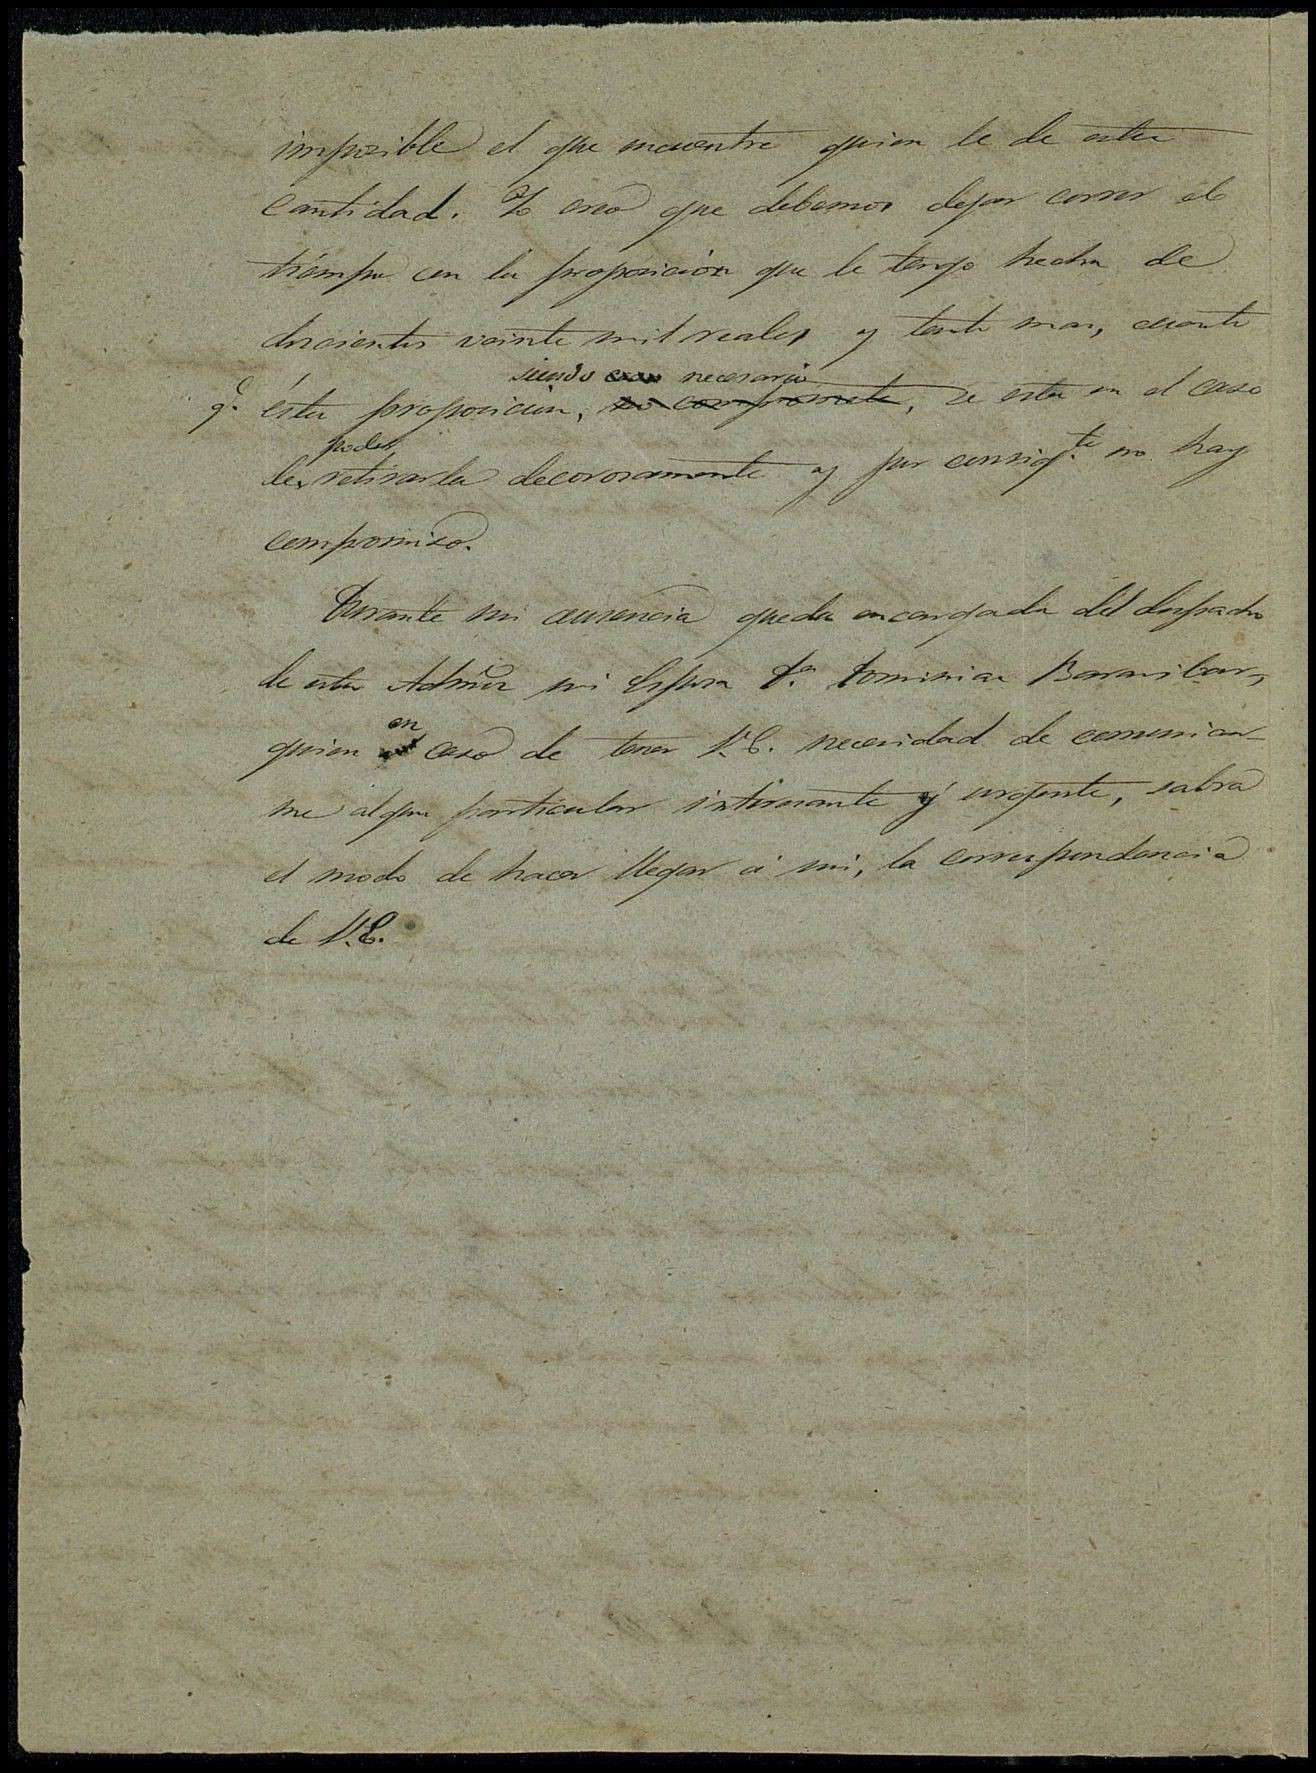 imposible el que encuentre quien le de esta
cantidad. Yo creo que debemos dejar correr el
tiempo con la proposicion que le tengo hecha de
doscientos veinte mil reales y tanto mas, cuanto
siendo necesario
q.e ésta proposicion, no compromete, se esta en el caso
poder
de retirarla decorosamente y por consig.te no hay
compromiso.
Durante mi ausencia queda encargada del despacho
de esta Admón mi Esposa D.a Dominica Baraibar,
en
quien caso de tener V.E. necesidad de comunicar-
me algun particular interesante y urgente, sabra
el modo de hacer llegar á mi, la correspondencia
de V.E.